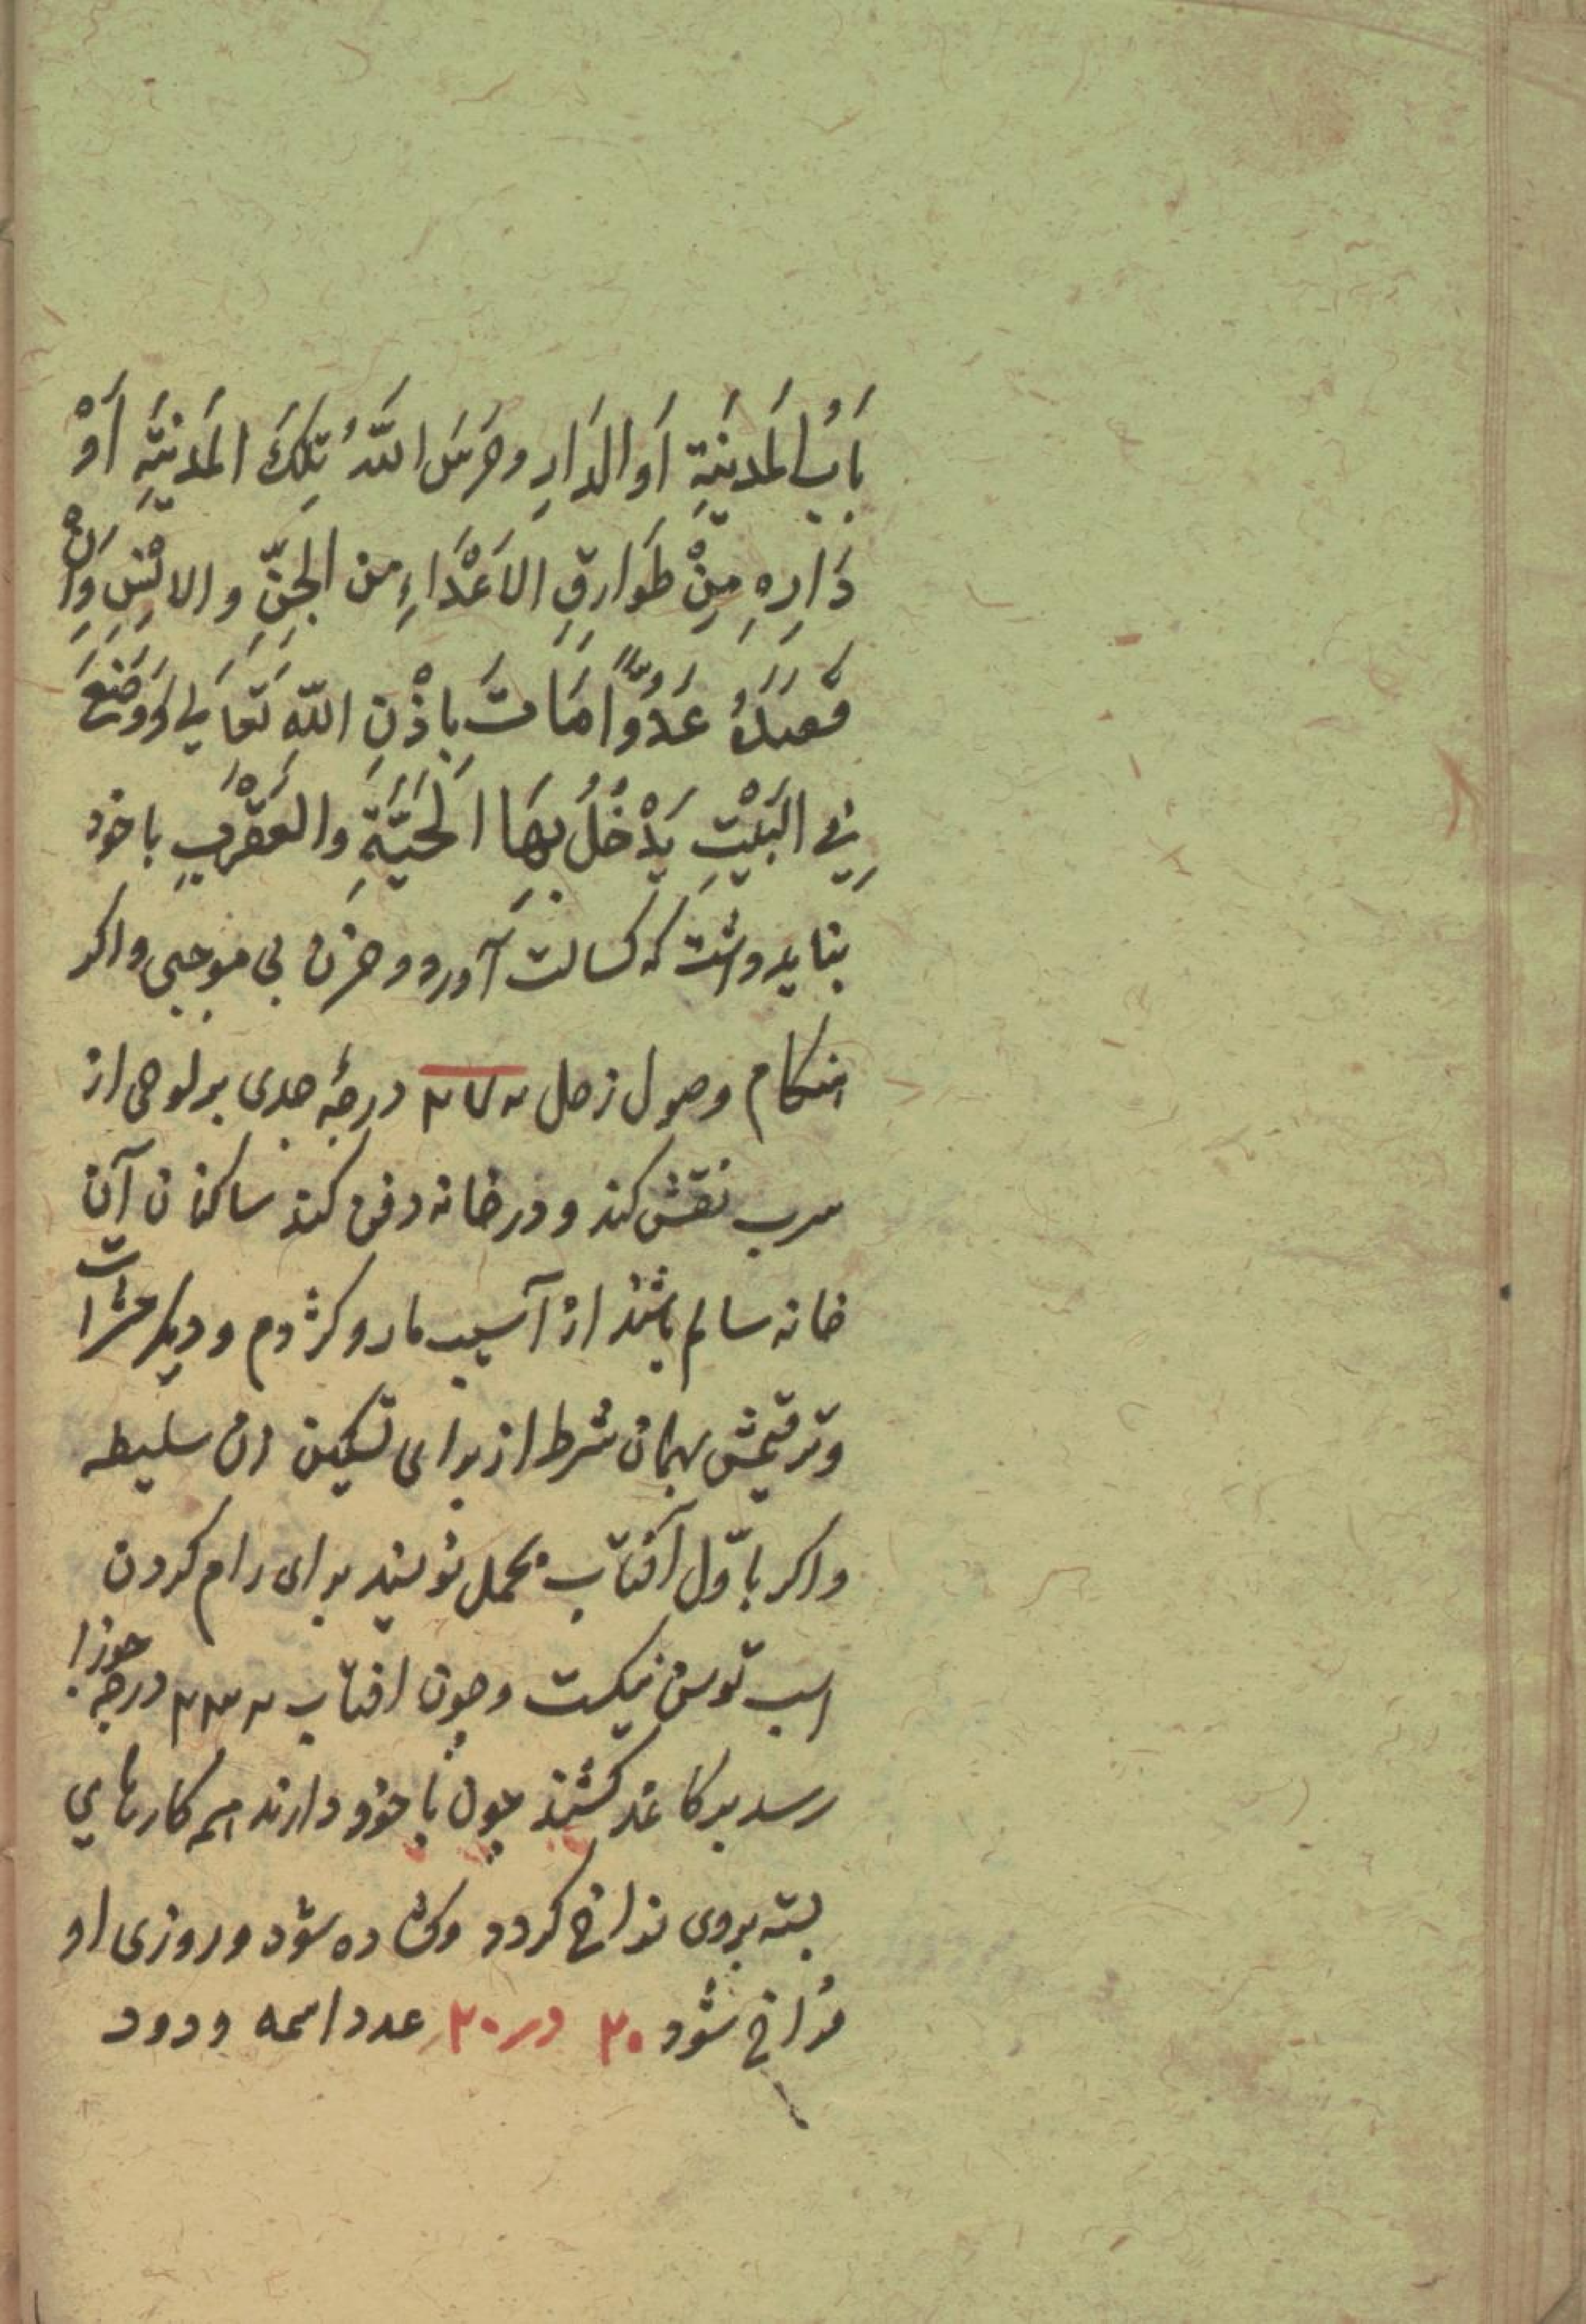 بَابُ المَدينَةِ اَو الدَارِ وحَرَسَ اللّهُ تِلكَ المَدنيَّةِ اَوْ
دَارِهِ مِنْ طَوارِقِ الاَعْدَاءِ من الجِنِّ والانْسِ وَاِنْ
قَصَدَهُ عَدُوًّا مَاتَ بِاِذْنِ اللّهِ تَعَالي لَووَضَعَ
فِي البَيْتِ يَدْخُلُ بِهَا الحَيَّةِ والعَقْرَبِ باخود
بنايد داشت كه كسالت آورد وحزن بى موجبى واكر
هنكام وصول زحل به ٢٧ درجهٔ جدى بر لوحى از
سرب نقش كند ودر خانه دفن كند ساكنان آن
خانه سالم باشند از آسيب مار وكژدم وديكر حشرات
وترقيمش بهمان شرط از براى تسكين زن سليطه
واكر باوّل آفتاب بحمل نويسند براى رام كردن
اسب توسن نيكست وچون افتاب به ٢٣ درجه جوزا
رسد بر كاغذ كشند چون با خود دارند همه كارهاي
بسته بروى فراخ كردد وكشاده شود وروزى او
فراخ شود ٢٠ در ٢٠ عدد اسمه ودود